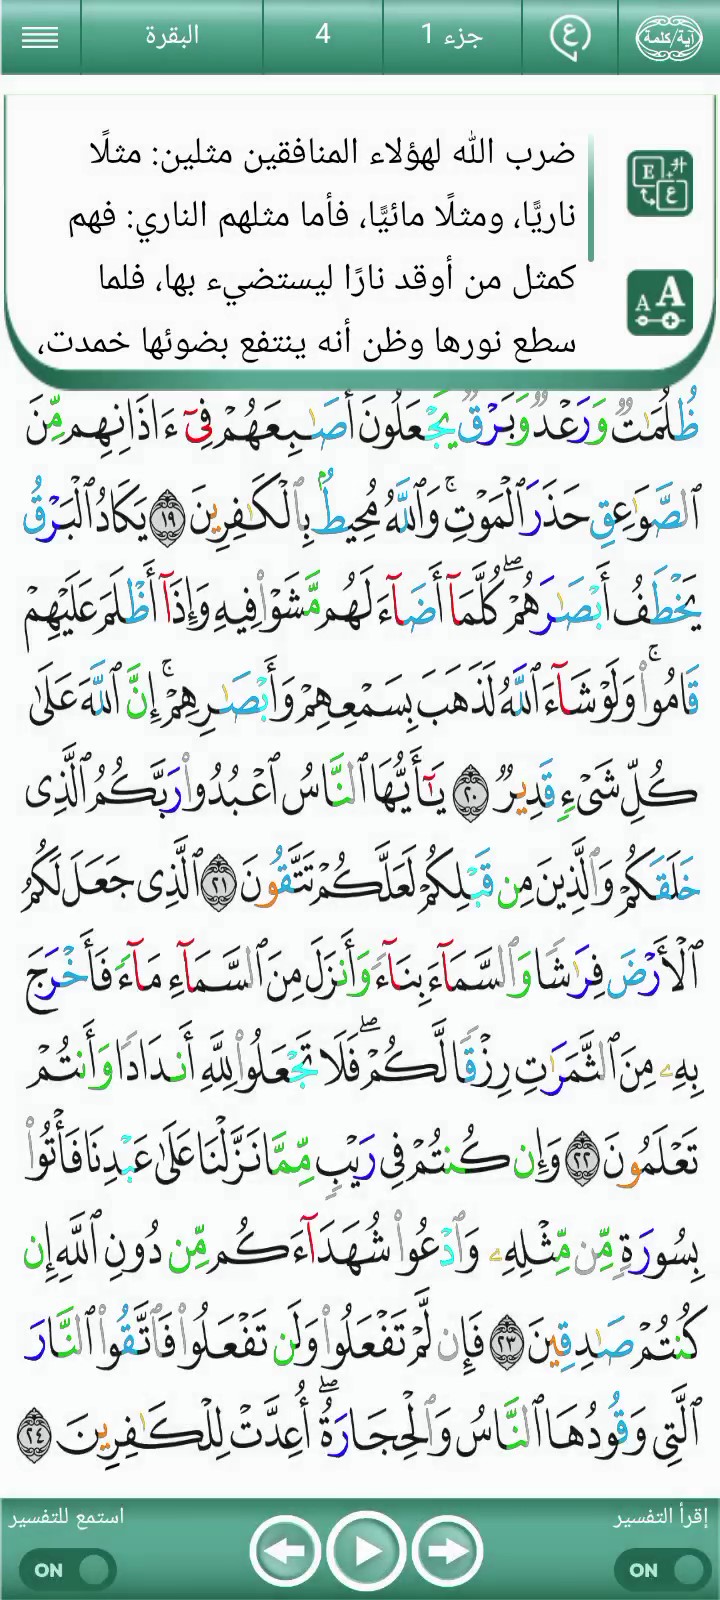 آية/كلمة ع جزء 1 4 البقرة
ضرب الله لهؤلاء المنافقين مثلين: مثلًا
ناريًّا، ومثلًا مائيًّا، فأما مثلهم الناري: فهم
كمثل من أوقد نارًا ليستضيء بها، فلما
سطع نورها وظن أنه ينتفع بضوئها خمدت،
E ع
A A
ظُلُمَٰتٌ وَرَعْدٌ وَبَرْقٌ يَجْعَلُونَ أَصَٰبِعَهُمْ فِىٓ ءَاذَانِهِم مِّنَ
ٱلصَّوَٰعِقِ حَذَرَ ٱلْمَوْتِ ۚ وَٱللَّهُ مُحِيطٌۢ بِٱلْكَٰفِرِينَ ١٩ يَكَادُ ٱلْبَرْقُ
يَخْطَفُ أَبْصَٰرَهُمْ ۖ كُلَّمَآ أَضَآءَ لَهُم مَّشَوْا۟ فِيهِ وَإِذَآ أَظْلَمَ عَلَيْهِمْ
قَامُوا۟ ۚ وَلَوْ شَآءَ ٱللَّهُ لَذَهَبَ بِسَمْعِهِمْ وَأَبْصَٰرِهِمْ ۚ إِنَّ ٱللَّهَ عَلَىٰ
كُلِّ شَىْءٍ قَدِيرٌ ٢٠ يَٰٓأَيُّهَا ٱلنَّاسُ ٱعْبُدُوا۟ رَبَّكُمُ ٱلَّذِى
خَلَقَكُمْ وَٱلَّذِينَ مِن قَبْلِكُمْ لَعَلَّكُمْ تَتَّقُونَ ٢١ ٱلَّذِى جَعَلَ لَكُمُ
ٱلْأَرْضَ فِرَٰشًا وَٱلسَّمَآءَ بِنَآءً وَأَنزَلَ مِنَ ٱلسَّمَآءِ مَآءً فَأَخْرَجَ
بِهِۦ مِنَ ٱلثَّمَرَٰتِ رِزْقًا لَّكُمْ ۖ فَلَا تَجْعَلُوا۟ لِلَّهِ أَندَادًا وَأَنتُمْ
تَعْلَمُونَ ٢٢ وَإِن كُنتُمْ فِى رَيْبٍ مِّمَّا نَزَّلْنَا عَلَىٰ عَبْدِنَا فَأْتُوا۟
بِسُورَةٍ مِّن مِّثْلِهِۦ وَٱدْعُوا۟ شُهَدَآءَكُم مِّن دُونِ ٱللَّهِ إِن
كُنتُمْ صَٰدِقِينَ ٢٣ فَإِن لَّمْ تَفْعَلُوا۟ وَلَن تَفْعَلُوا۟ فَٱتَّقُوا۟ ٱلنَّارَ
ٱلَّتِى وَقُودُهَا ٱلنَّاسُ وَٱلْحِجَارَةُ ۖ أُعِدَّتْ لِلْكَٰفِرِينَ ٢٤
إقرأ التفسير استمع للتفسير
ON ON